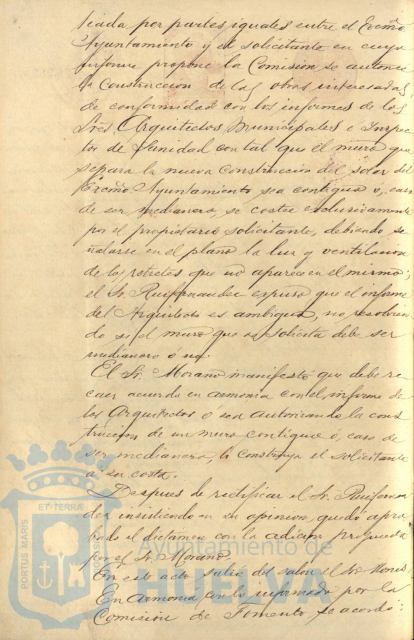 ciada por partes iguales entre el Excmo
Ayuntamiento y el solicitante en cuyo
informe propone la Comision se autorice
la construccion de las obras interesadas,
de conformidad con los informes de los
Sres Arquitectos Municipales e Inspec
tor de Sanidad con tal que el muro que
separa la nueva construccion del solar del
Excmo Ayuntamiento sea contiguo o, caso
de ser medianero, se costee exclusivamente
por el propietario solicitante, debiendo se
ñalarse en el plano la luz y ventilacion
de los retretes que no aparece en el mismo;
el Sr. Ruifernandez expuso que el informe
del Arquitecto es ambiguo, no resolvien
do si el muro que se solicita debe ser
medianero o no.
El Sr. Morano manifestó que debe re
caer acuerdo en armonia con el informe de
los Arquitectos o sea autorizando la cons
truccion de un muro contiguo o, caso de
ser medianero, lo construya el solicitante
a su costa.
Despues de rectificar el Sr. Ruifernan
dez insistiendo en su opinion, quedó apro
bado el dictamen con la adicion propuesta
por el Sr. Morano.
En este acto salió del salon el Sr. Mones
En armonia con lo informado por la
Comision de Fomento se acordó:
PORTUS MARIS
ET TERRÆ
CUSTODIA
Ayuntamiento de
HUELVA